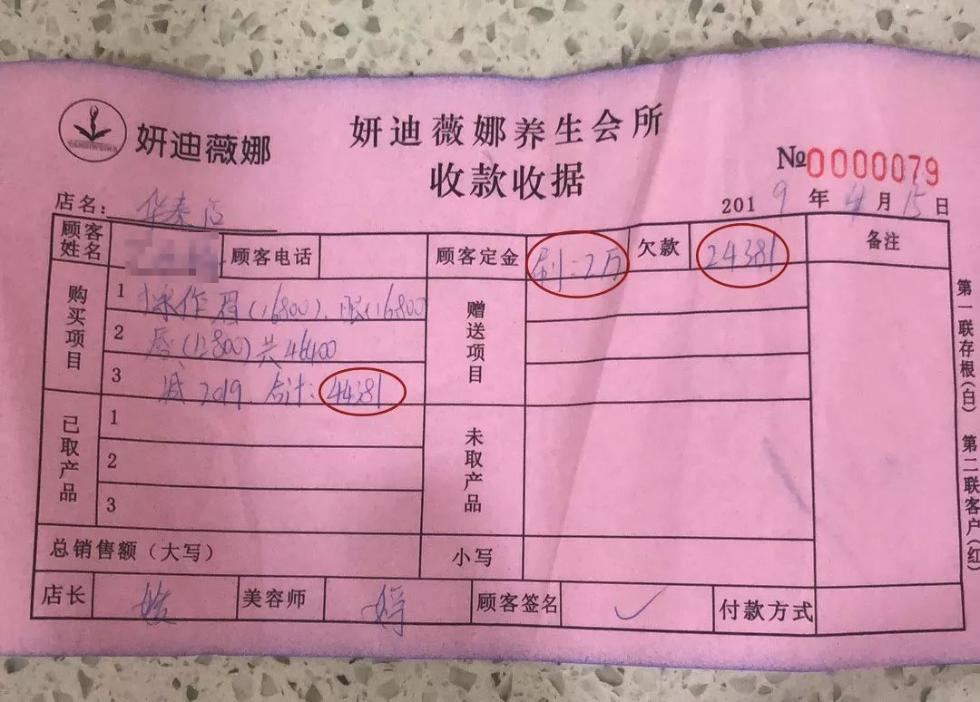 妍迪薇娜
妍迪薇娜养生会所
收款收据
№0000079
店名: 华泰店
2019年4月15日
顾客姓名
顾客电话
顾客定金 刷:2万
欠款 24381
备注
购买项目
1 冰作眉(16800).眼(16800
2 唇(12800)共46400
3 减2019.合计:44381
赠送项目
已取产品
1
2
3
未取产品
总销售额(大写)
小写
店长
美容师 婷
顾客签名 ✓
付款方式
第一联存根(白) 第二联客户(红)